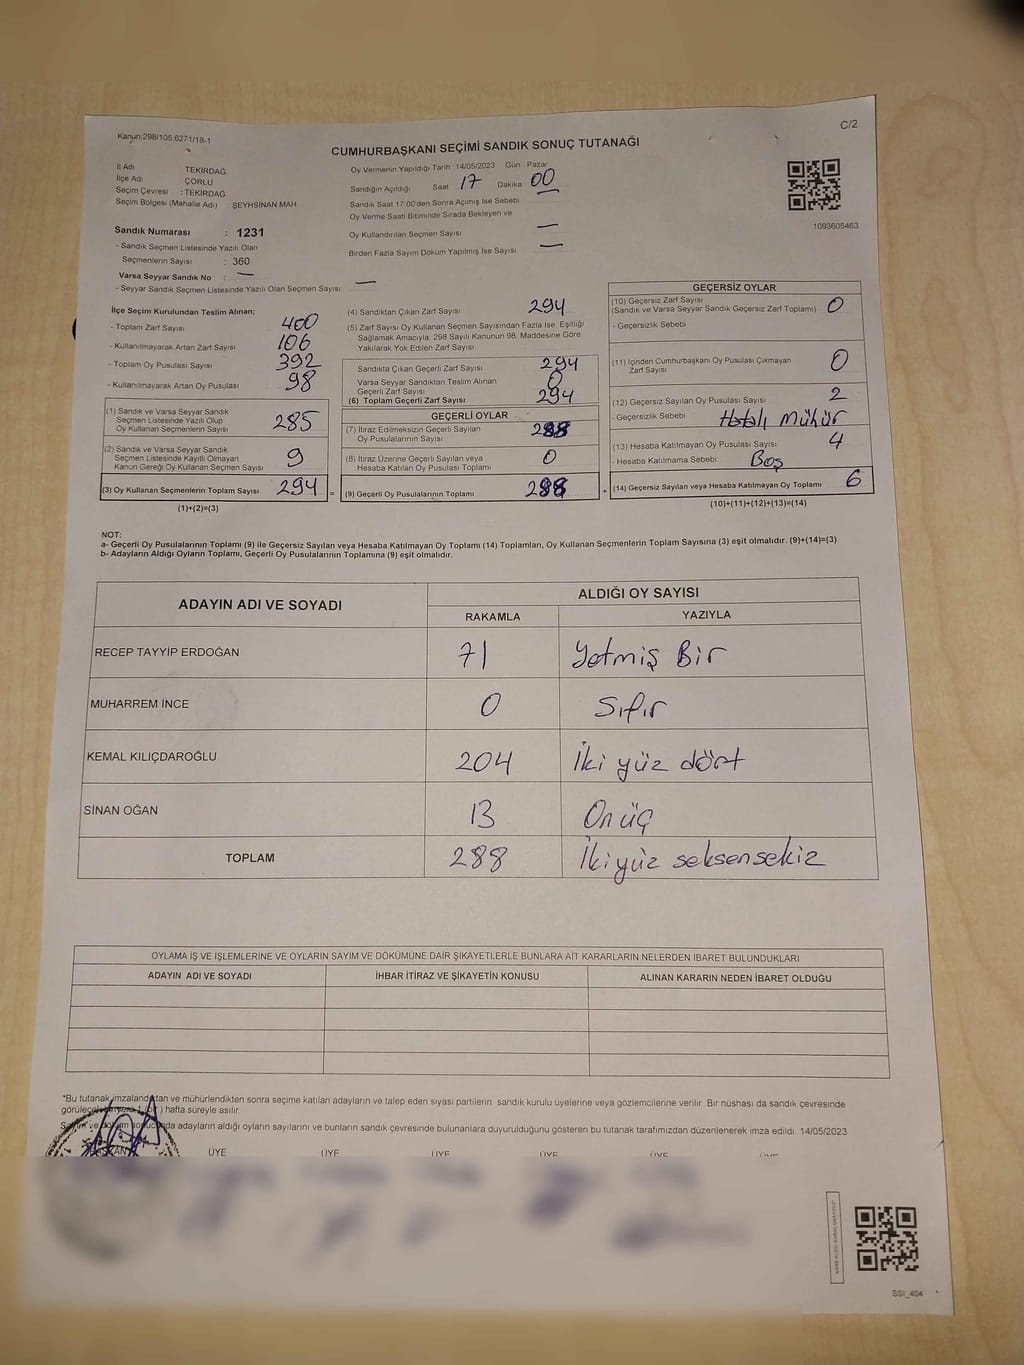 Kanun:298/105,6271/18-1
C/2
CUMHURBAŞKANI SEÇİMİ SANDIK SONUÇ TUTANAĞI
İl Adı TEKİRDAĞ
İlçe Adı ÇORLU
Seçim Çevresi : TEKİRDAĞ
Seçim Bölgesi (Mahalle Adı) ŞEYHSİNAN MAH
Sandık Numarası : 1231
- Sandık Seçmen Listesinde Yazılı Olan
Seçmenlerin Sayısı : 360
Varsa Seyyar Sandık No : —
- Seyyar Sandık Seçmen Listesinde Yazılı Olan Seçmen Sayısı: —
Oy Vermenin Yapıldığı Tarih :14/05/2023 Gün Pazar
Sandığın Açıldığı Saat 17 Dakika 00
Sandık Saat 17:00'den Sonra Açımış İse Sebebi
Oy Verme Saati Bitiminde Sırada Bekleyen ve
Oy Kullandırılan Seçmen Sayısı —
Birden Fazla Sayım Döküm Yapılmış İse Sayısı —
1093605463
İlçe Seçim Kurulundan Teslim Alınan;
- Toplam Zarf Sayısı 400
- Kullanılmayarak Artan Zarf Sayısı 106
- Toplam Oy Pusulası Sayısı 392
- Kullanılmayarak Artan Oy Pusulası 98
(1) Sandık ve Varsa Seyyar Sandık
Seçmen Listesinde Yazılı Olup
Oy Kullanan Seçmenlerin Sayısı 285
(2) Sandık ve Varsa Seyyar Sandık
Seçmen Listesinde Kayıtlı Olmayan
Kanun Gereği Oy Kullanan Seçmen Sayısı 9
(3) Oy Kullanan Seçmenlerin Toplam Sayısı 294 =
(1)+(2)=(3)
(4) Sandıktan Çıkan Zarf Sayısı 294
(5) Zarf Sayısı Oy Kullanan Seçmen Sayısından Fazla İse, Eşitliği
Sağlamak Amacıyla, 298 Sayılı Kanunun 98. Maddesine Göre
Yakılarak Yok Edilen Zarf Sayısı
Sandıkta Çıkan Geçerli Zarf Sayısı 294
Varsa Seyyar Sandıktan Teslim Alınan
Geçerli Zarf Sayısı 0
(6) Toplam Geçerli Zarf Sayısı 294
GEÇERLİ OYLAR
(7) İtiraz Edilmeksizin Geçerli Sayılan
Oy Pusulalarının Sayısı 288
(8) İtiraz Üzerine Geçerli Sayılan veya
Hesaba Katılan Oy Pusulası Toplamı 0
(9) Geçerli Oy Pusulalarının Toplamı 288 +
GEÇERSİZ OYLAR
(10) Geçersiz Zarf Sayısı
(Sandık ve Varsa Seyyar Sandık Geçersiz Zarf Toplamı) 0
- Geçersizlik Sebebi
(11) İçinden Cumhurbaşkanı Oy Pusulası Çıkmayan
Zarf Sayısı 0
(12) Geçersiz Sayılan Oy Pusulası Sayısı 2
- Geçersizlik Sebebi Hatalı Mühür
(13) Hesaba Katılmayan Oy Pusulası Sayısı 4
- Hesaba Katılmama Sebebi Boş
(14) Geçersiz Sayılan veya Hesaba Katılmayan Oy Toplamı 6
(10)+(11)+(12)+(13)=(14)
NOT:
a- Geçerli Oy Pusulalarının Toplamı (9) ile Geçersiz Sayılan veya Hesaba Katılmayan Oy Toplamı (14) Toplamları, Oy Kullanan Seçmenlerin Toplam Sayısına (3) eşit olmalıdır. (9)+(14)=(3)
b- Adayların Aldığı Oyların Toplamı, Geçerli Oy Pusulalarının Toplamına (9) eşit olmalıdır.
ADAYIN ADI VE SOYADI ALDIĞI OY SAYISI
RAKAMLA YAZIYLA
RECEP TAYYİP ERDOĞAN 71 Yetmiş Bir
MUHARREM İNCE 0 Sıfır
KEMAL KILIÇDAROĞLU 204 İki yüz dört
SİNAN OĞAN 13 On üç
TOPLAM 288 İkiyüz seksensekiz
OYLAMA İŞ VE İŞLEMLERİNE VE OYLARIN SAYIM VE DÖKÜMÜNE DAİR ŞİKAYETLERLE BUNLARA AİT KARARLARIN NELERDEN İBARET BULUNDUKLARI
ADAYIN ADI VE SOYADI İHBAR İTİRAZ VE ŞİKAYETİN KONUSU ALINAN KARARIN NEDEN İBARET OLDUĞU
*Bu tutanak imzalandıktan ve mühürlendikten sonra seçime katılan adayların ve talep eden siyasi partilerin sandık kurulu üyelerine veya gözlemcilerine verilir. Bir nüshası da sandık çevresinde
hafta süreyle asılır.
Sayım ve döküm sonucunda adayların aldığı oyların sayılarını ve bunların sandık çevresinde bulunanlara duyurulduğunu gösteren bu tutanak tarafımızdan düzenlenerek imza edildi. 14/05/2023
BAŞKAN ÜYE ÜYE ÜYE ÜYE ÜYE ÜYE
SSİ_404